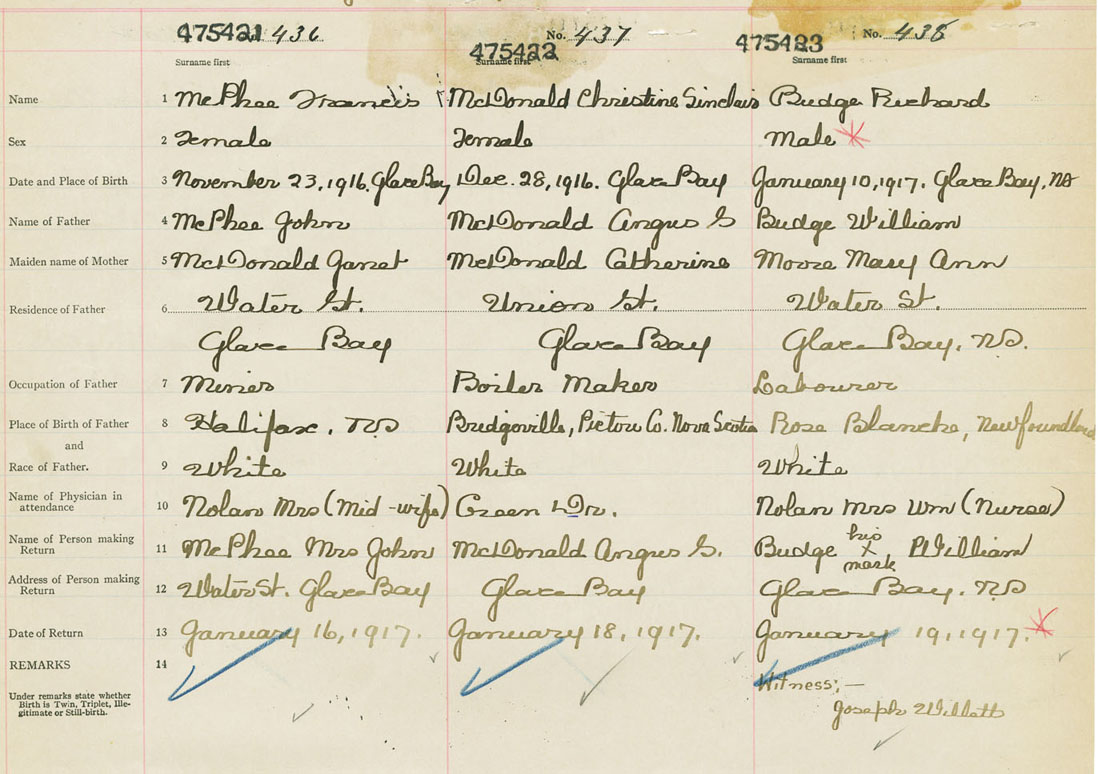 475421 436 475422 No. 437 475423 No. 438
Surname first Surname first Surname first
Name 1 McPhee Francis McDonald Christine Sinclair Budge Richard
Sex 2 Female Female Male
Date and Place of Birth 3 November 23, 1916. Glace Bay Dec. 28, 1916. Glace Bay January 10, 1917. Glace Bay, NS
Name of Father 4 McPhee John McDonald Angus S Budge William
Maiden name of Mother 5 McDonald Janet McDonald Catherine Moore Mary Ann
Residence of Father 6 Water St. Union St. Water St.
Glace Bay Glace Bay Glace Bay, N.S.
Occupation of Father 7 Miner Boiler Maker Labourer
Place of Birth of Father 8 Halifax, NS Bridgeville, Pictou Co. Nova Scotia Rose Blanche, Newfoundland
and
Race of Father. 9 White White White
Name of Physician in attendance 10 Nolan Mrs (Mid-wife) Green Dr. Nolan Mrs Wm (Nurse)
Name of Person making Return 11 McPhee Mrs John McDonald Angus S. Budge his x mark, William
Address of Person making Return 12 Water St. Glace Bay Glace Bay Glace Bay, N.S
Date of Return 13 January 16, 1917. January 18, 1917. January 19, 1917.
REMARKS 14
Under remarks state whether Birth is Twin, Triplet, Ille-
gitimate or Still-birth.
Witness; —
Joseph Willett